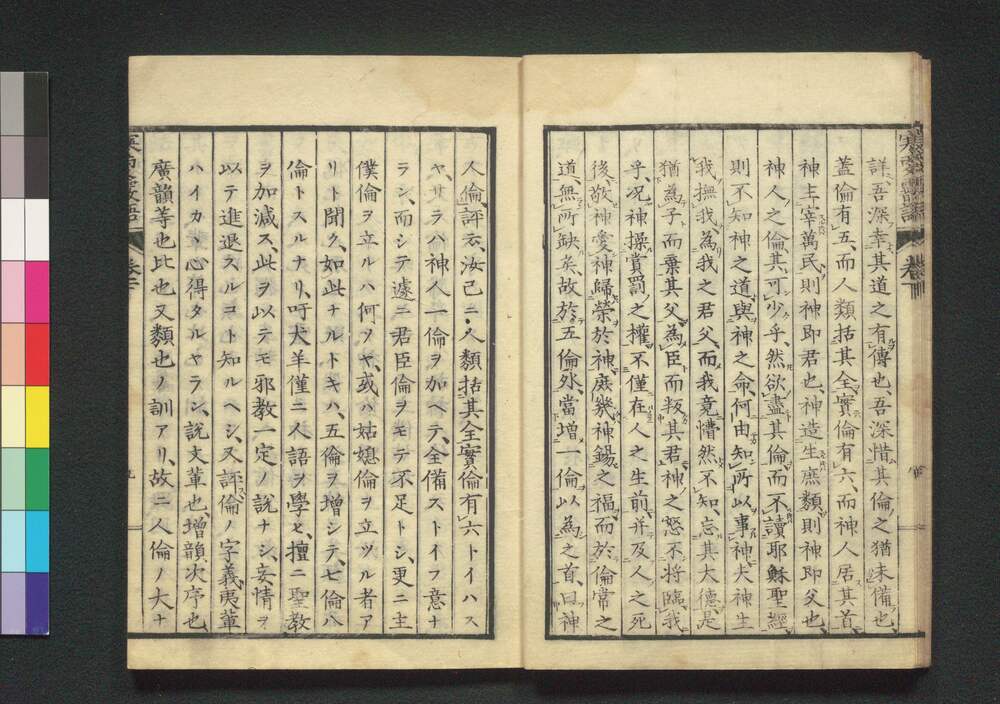 詳、吾深幸其道之有傳也、吾深惜其倫之猶未備也、
蓋倫有五、而人類括其全、實倫有六、而神人居其首、
神主宰萬民、則神即君也、神造生庶類、則神即父也、
神人之倫、其可少乎、然欲盡其倫、而不讀耶穌聖經、
則不知神之道、與神之命、何由知所以事神、夫神生
我、撫我、為我之君父、而我竟懵然不知、忘其大德、是
猶為子而棄其父、為臣而叛其君、神之怒不將臨我
乎、况神操賞罰之權、不僅在人之生前、并及人之死
後、敬神愛神、歸榮於神、庶幾神錫之福、而於倫常之
道、無所缺矣、故於五倫外、當增一倫、以為之首、曰神
人倫、評云、汝已ニ、人類括其全、實倫有六トイハス
ヤ、サラハ神人一倫ヲ加ヘテ、全備ストイフ意ナ
ラン、而シテ遽ニ君臣倫ヲモテ不足トシ、更ニ主
僕倫ヲ立ルハ何ヲヤ、或ハ姑媳倫ヲ立ツル者ア
リト聞ク、如此ナルトキハ、五倫ヲ增シテ、七倫八
倫トスルナリ、吁犬羊僅ニ人語ヲ學ヒ、擅ニ聖教
ヲ加減ス、此ヲ以テモ邪教一定ノ説ナシ、妄情ヲ
以テ進退スルコト知ルヘシ、又評倫ノ字義、夷輩
ハイカヽ心得タルヤラン、説文輩也、增韻次序也、
廣韻等也比也又類也ノ訓アリ、故ニ人倫ノ大ナ